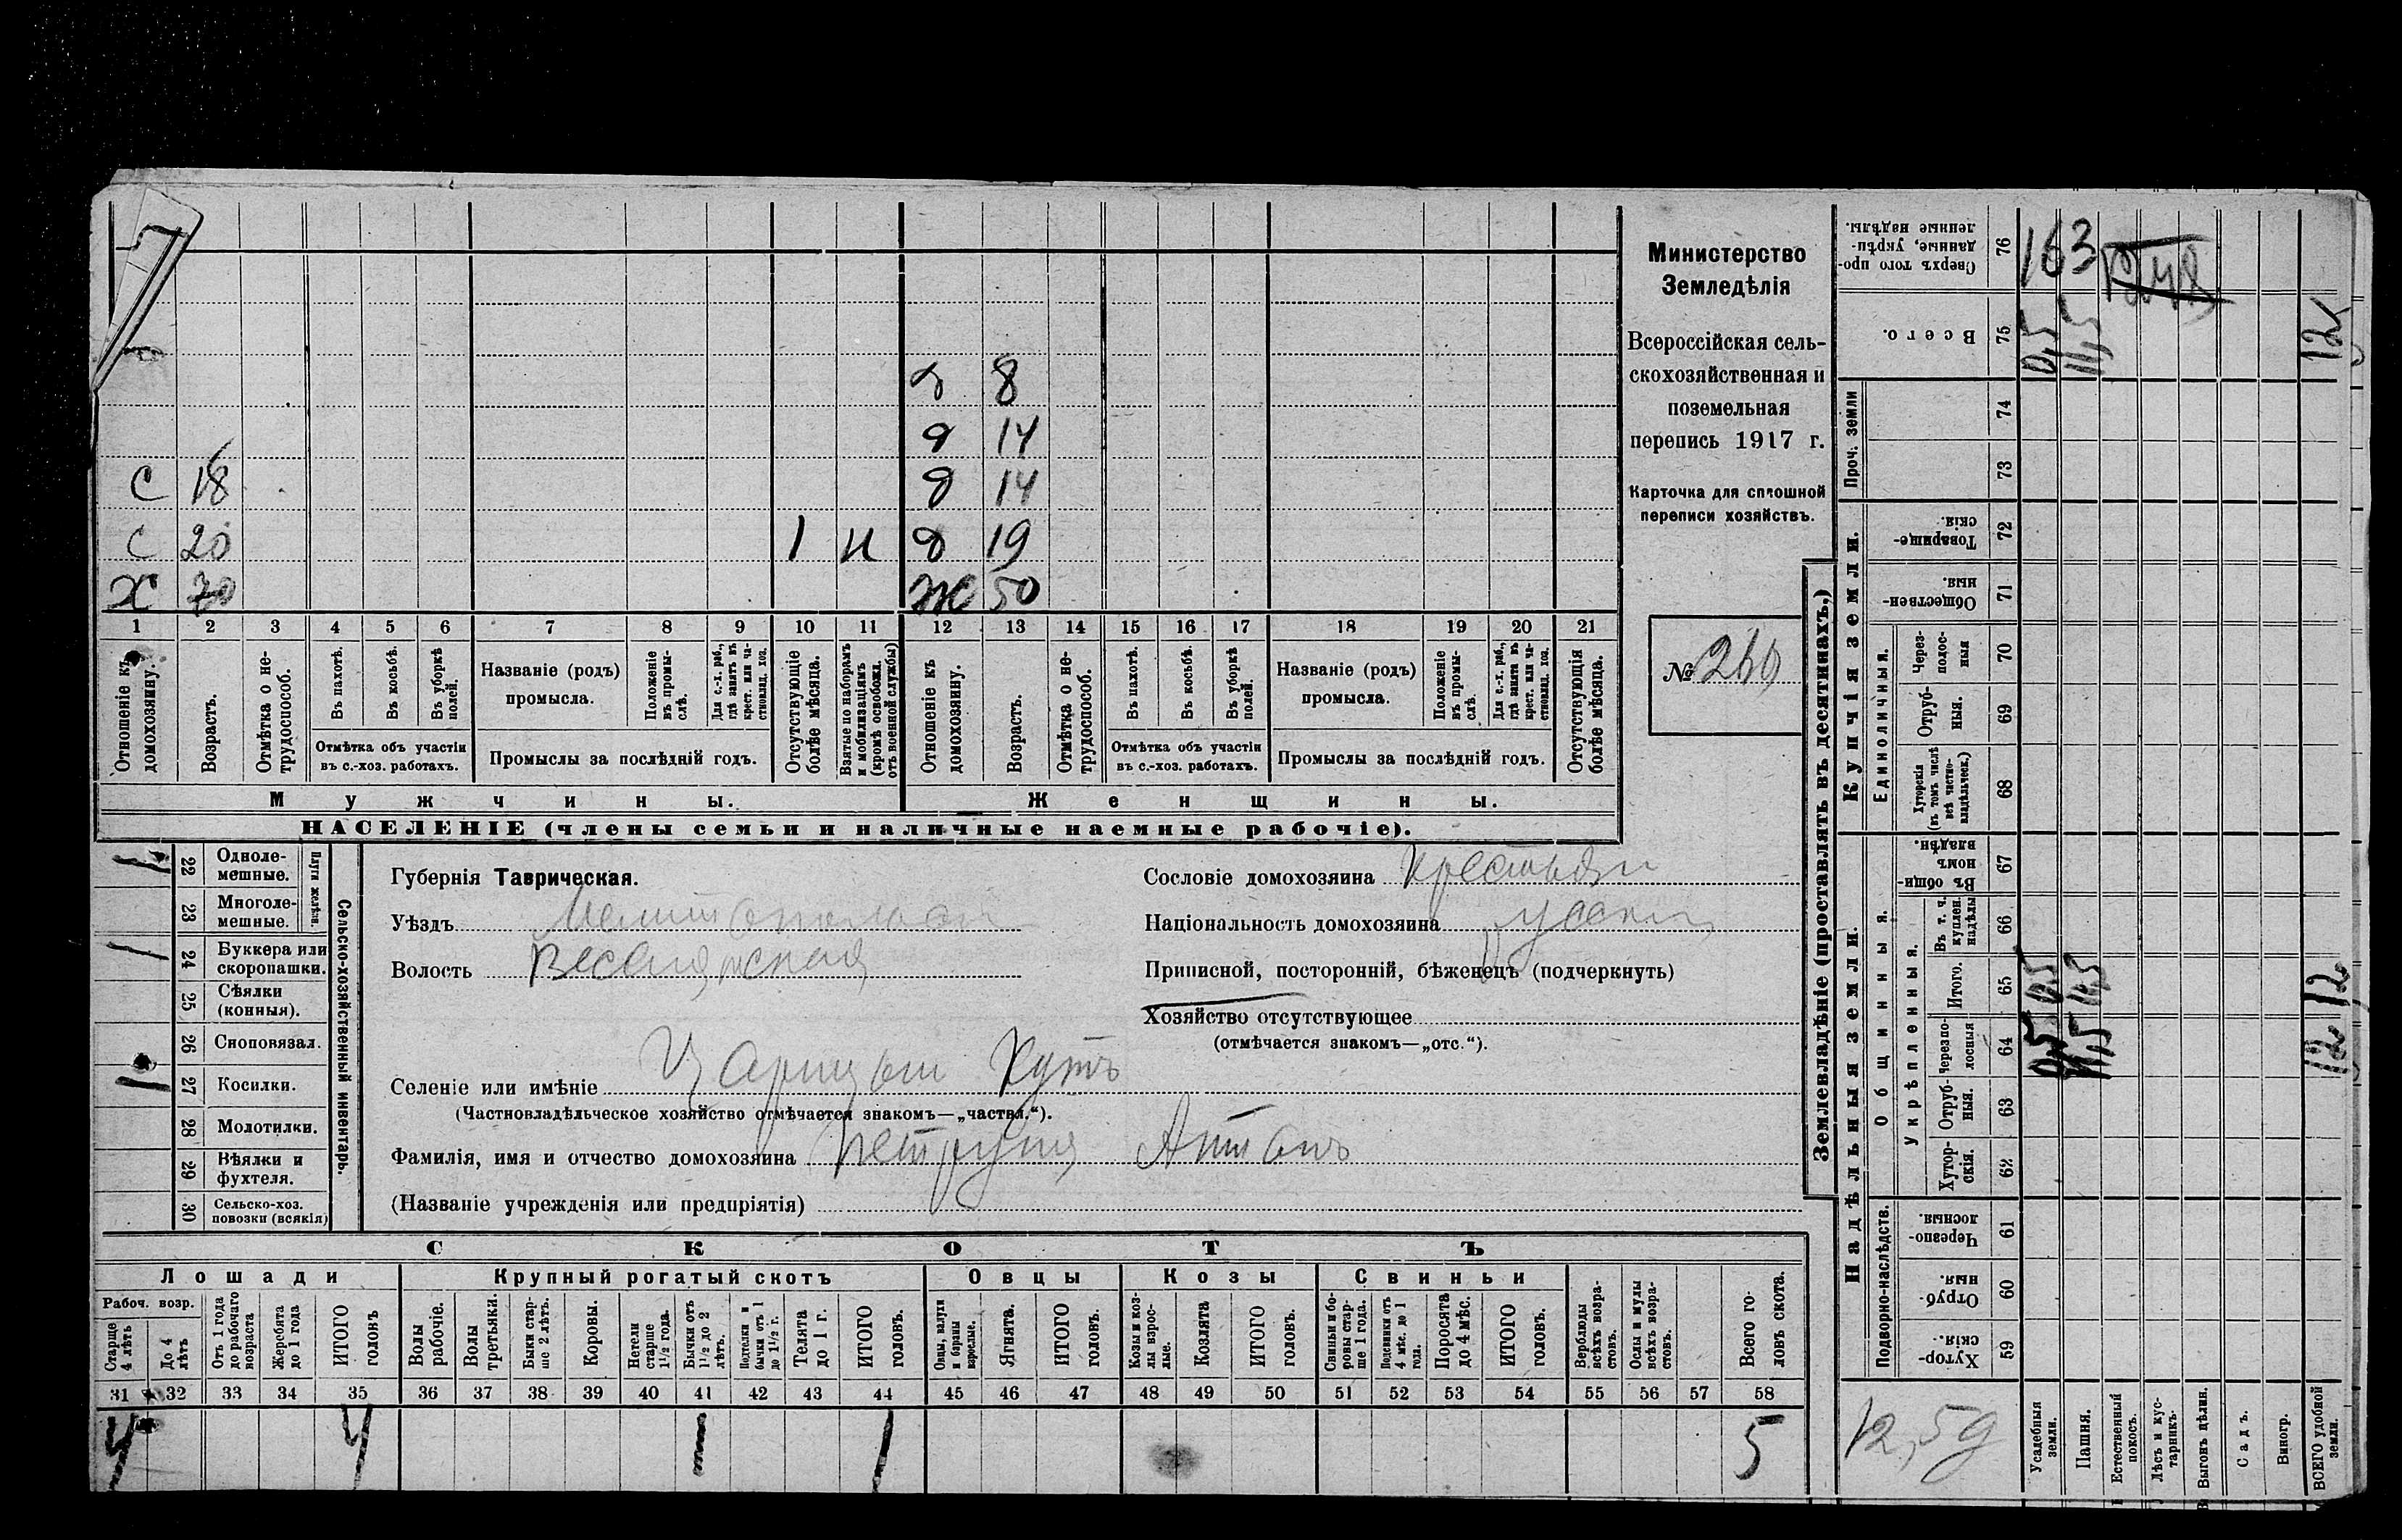 С 18 д 8
д 14
д 14
С 20 1 н д 19
Х 70 Ж 50
1 2 3 4 5 6 7 8 9 10 11 12 13 14 15 16 17 18 19 20 21
Отношеніе къ домохозяину.
Возрастъ.
Отмѣтка о не-трудоспособ.
Въ пахотѣ.
Въ косьбѣ.
Въ уборкѣ полей.
Отмѣтка объ участіи въ с.-хоз. работахъ.
Названіе (родъ) промысла.
Положеніе въ промы-слѣ.
Для с.-х. раб., гдѣ занятъ въ крест. или ча-стновлад. хоз.
Промыслы за послѣдній годъ.
Отсутствующіе болѣе мѣсяца.
Взятые по наборамъ и мобилизаціямъ (кромѣ освобожд. отъ военной службы)
Отношеніе къ домохозяину.
Возрастъ.
Отмѣтка о не-трудоспособ.
Въ пахотѣ.
Въ косьбѣ.
Въ уборкѣ полей.
Отмѣтка объ участіи въ с.-хоз. работахъ.
Названіе (родъ) промысла.
Положеніе въ промы-слѣ.
Для с.-х. раб., гдѣ занятъ въ крест. или ча-стновлад. хоз.
Промыслы за послѣдній годъ.
Отсутствующія болѣе мѣсяца.
Мужчины. Женщины.
НАСЕЛЕНІЕ (члены семьи и наличные наемные рабочіе).
Министерство
Земледѣлія
Всероссійская сель-
скохозяйственная и
поземельная
перепись 1917 г.
Карточка для сплошной
переписи хозяйствъ.
№ 260
Сельско-хозяйственный инвентарь.
Плуги желѣзн.
1 22 Одноле-мешные.
23 Многоле-мешные.
1 24 Буккера или скоропашки.
25 Сѣялки (конныя).
26 Сноповязал.
1 27 Косилки.
28 Молотилки.
29 Вѣялки и фухтеля.
30 Сельско-хоз. повозки (всякія)
Губернія Таврическая.
Уѣздъ Мелитопольскій
Волость Веселянская
Селеніе или имѣніе Царицын Кутъ
(Частновладѣльческое хозяйство отмѣчается знакомъ—„частвл.“).
Фамилія, имя и отчество домохозяина Петруня Антонъ
(Названіе учрежденія или предпріятія)
Сословіе домохозяина крестьян
Національность домохозяина русскій
Приписной, посторонній, бѣженецъ (подчеркнуть)
Хозяйство отсутствующее
(отмѣчается знакомъ—„отс.“).
СКОТЪ
Лошади Крупный рогатый скотъ Овцы Козы Свиньи
Рабоч. возр.
Старше 4 лѣтъ
До 4 лѣтъ
Отъ 1 года до рабочаго возраста
Жеребята до 1 года
ИТОГО головъ
Волы рабочіе.
Волы третьяки.
Быки стар-ше 2 лѣтъ.
Коровы.
Нетели старше 1½ года.
Бычки отъ 1½ до 2 лѣтъ.
Подтелки и бычки отъ 1 до 1½ г.
Телята до 1 г.
ИТОГО головъ.
Овцы, валухи и бараны взрослые.
Ягнята.
ИТОГО головъ.
Козы и коз-лы взрос-лые.
Козлята
ИТОГО головъ.
Свиньи и бо-ровы стар-ше 1 года.
Подсвинки отъ 4 мѣс. до 1 года.
Поросята до 4 мѣс.
ИТОГО головъ.
Верблюды всѣхъ возра-стовъ.
Ослы и мулы всѣхъ возра-стовъ.
Всего го-ловъ скота.
31 32 33 34 35 36 37 38 39 40 41 42 43 44 45 46 47 48 49 50 51 52 53 54 55 56 57 58
4 4 1 1 5
Землевладѣніе (проставлять въ десятинахъ.)
Сверхъ того про-данные, укрѣп-ленные надѣлы. 76 163
Всего. 75 0,5 11,5 12
Проч. земли 74
73
Купчія земли.
Товарище-скія. 72
Обществен-ныя. 71
Единоличныя.
Через-полос-ныя 70
Отруб-ныя. 69
Хуторскія (въ томъ числѣ всѣ частно-владѣльческ.) 68
Надѣльныя земли.
Общинныя.
Въ общи-номъ владѣн. 67
Укрѣпленныя.
Въ т. ч. куплен. надѣлы 66
Итого. 65 0,5 11,5 12
Черезпо-лосныя 64 0,5 11,5 12
Отруб-ныя. 63
Хутор-скія. 62
Подворно-наслѣдств.
Черезпо-лосныя. 61
Отруб-ныя. 60
Хутор-скія. 59
12,5д
Усадебныя земли.
Пашня.
Естественный покосъ.
Лѣсъ и кус-тарникъ.
Выгонъ цѣлин.
Садъ.
Виногр.
ВСЕГО удобной земли.